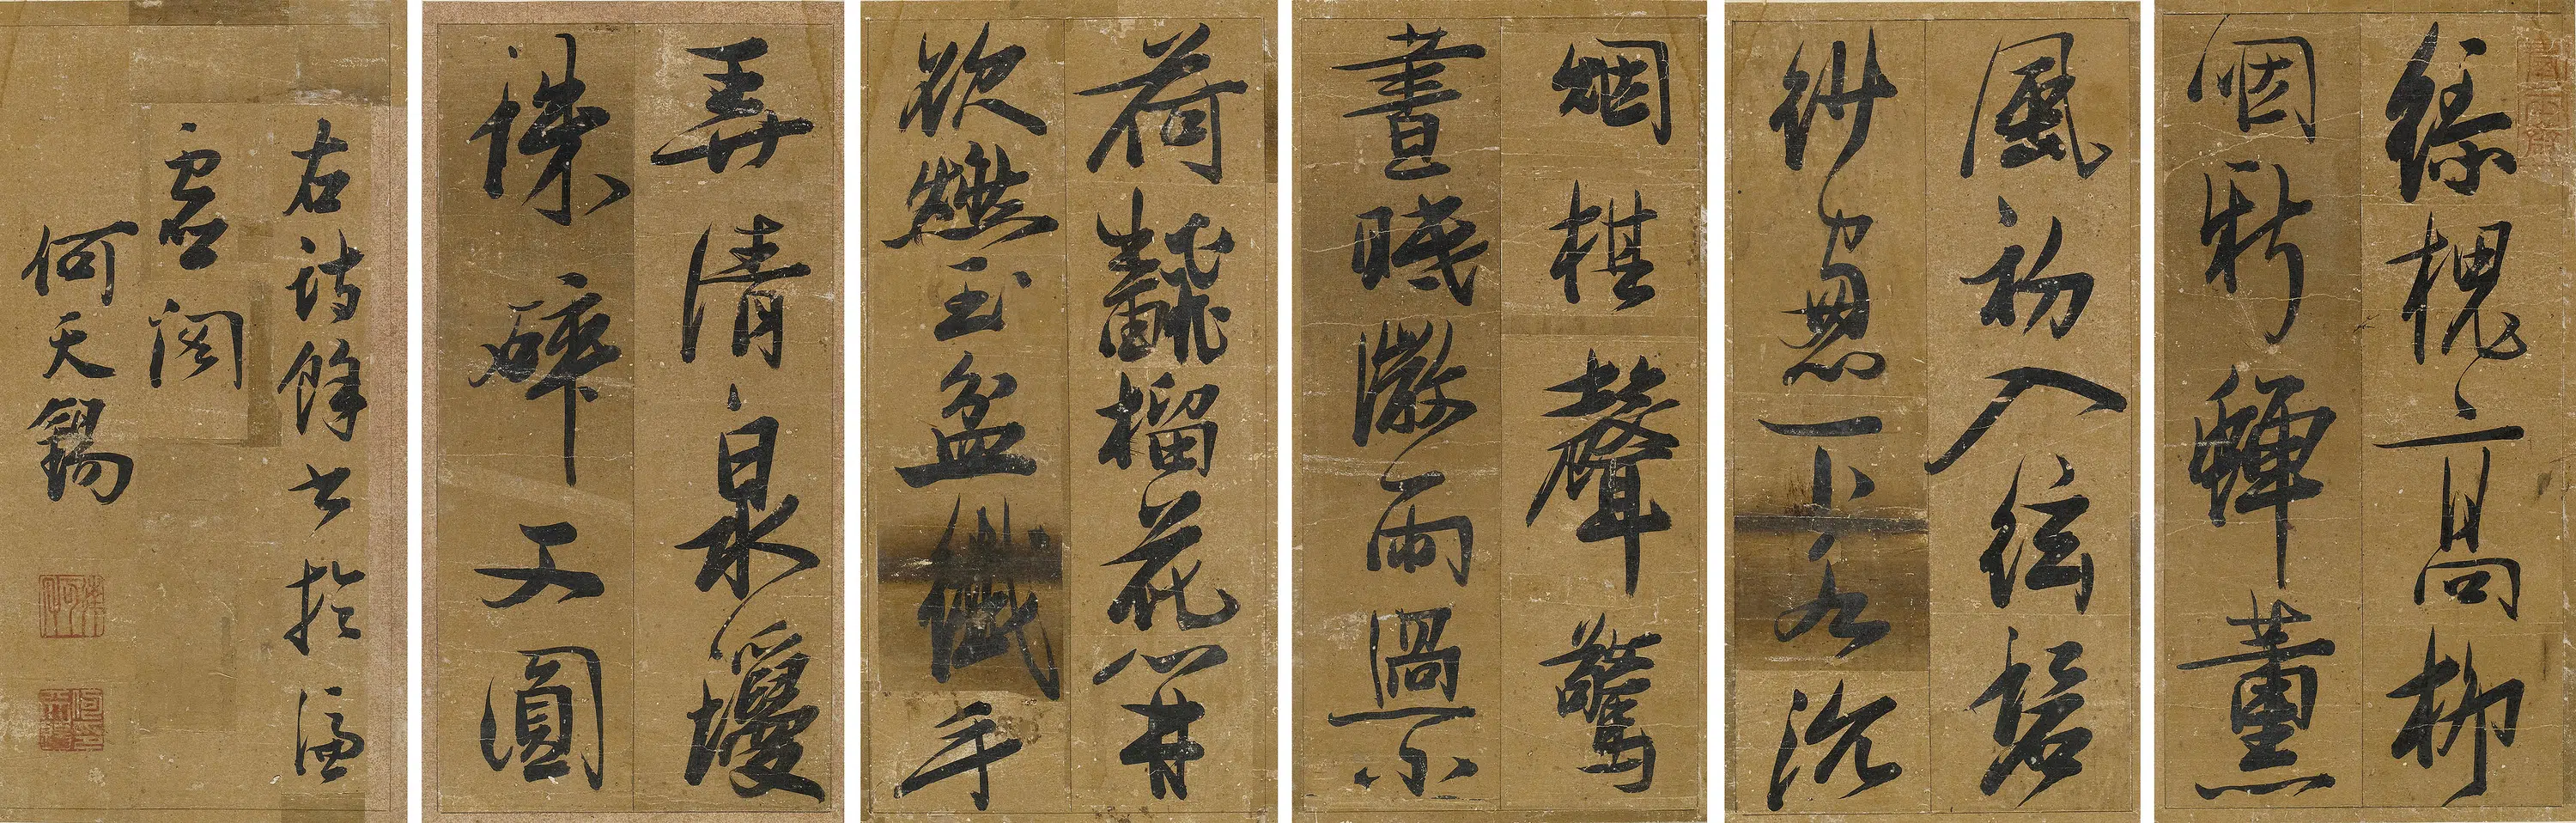 綠槐高柳
咽新蟬薰
風初入絃碧
紗窓下水沉
烟棋聲驚
晝眠微雨過小
荷飜榴花開
欲燃玉盆纖手
弄清泉瓊
珠碎又圓
右詩餘書於
虛閣
何天錫